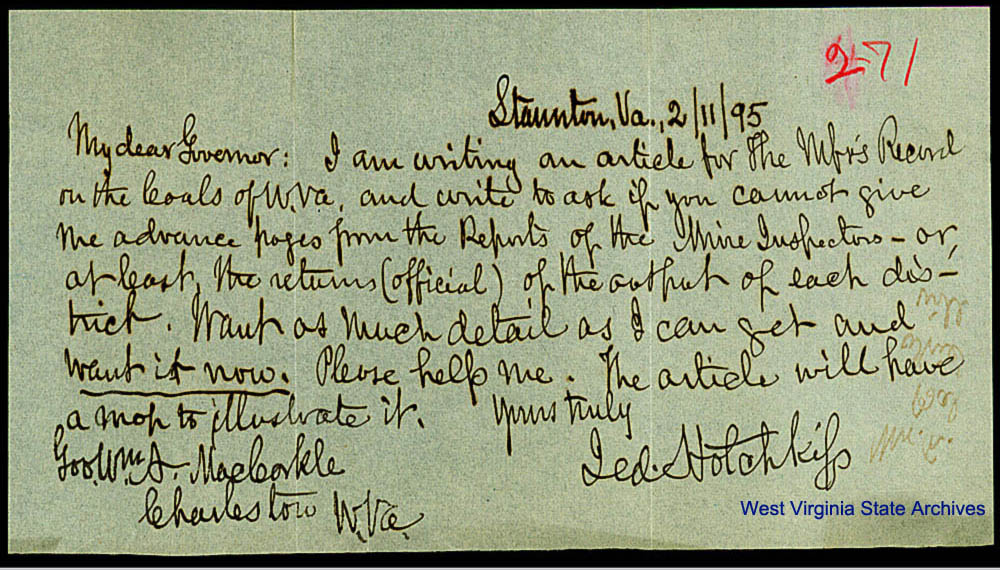 271
Staunton, Va., 2/11/95
My dear Governor: I am writing an article for the Mfr's Record
on the Coals of W.Va, and write to ask if you cannot give
me advance pages from the Reports of the Mine Inspectors - or,
at least, the returns (official) of the output of each dis-
trict. Want as much detail as I can get and
want it now. Please help me. The article will have
a map to illustrate it. Yours truly
Gov. Wm. A. MacCorkle Jed. Hotchkiss
Charleston W.Va.
West Virginia State Archives